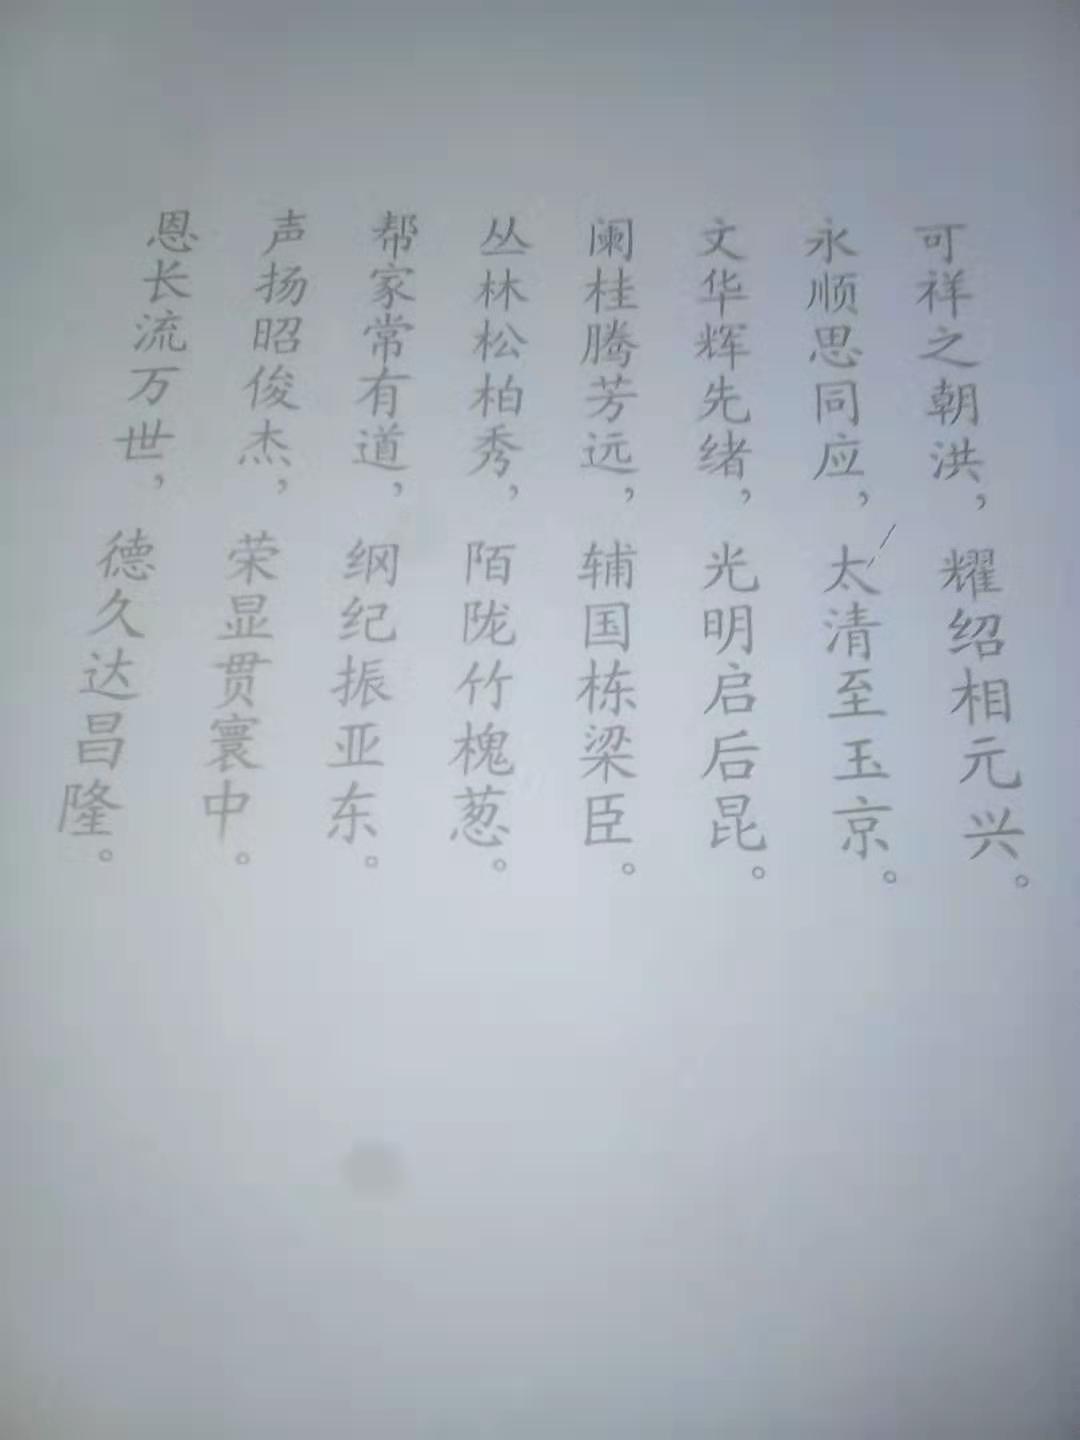 可祥之朝洪，耀绍相元兴。
永顺思同应，太清至玉京。
文华辉先绪，光明启后昆。
阆桂腾芳远，辅国栋梁臣。
丛林松柏秀，陌陇竹槐葱。
帮家常有道，纲纪振亚东。
声扬昭俊杰，荣显贯寰中。
恩长流万世，德久达昌隆。